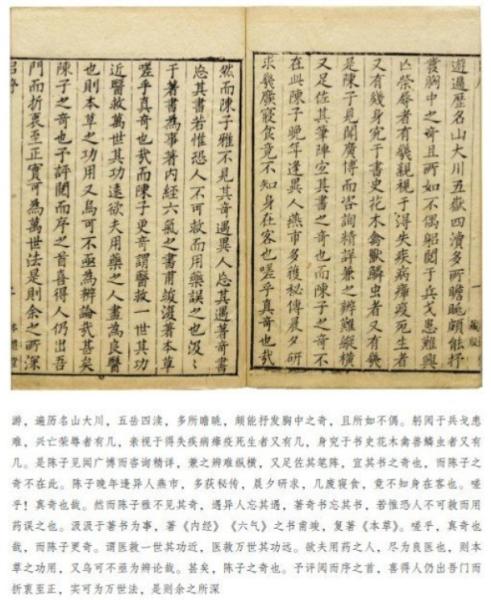 遊遍歷名山大川五嶽四瀆多所瞻眺頗能抒
發胸中之奇且所如不偶躬閱于兵戈患難興
亡榮辱者有幾親視于得失疾病瘴疫死生者
又有幾身究于書史花木禽獸鱗虫者又有幾
是陳子見聞廣博而咨詢精詳兼之辨難縱橫
又足佐其筆陣宜其書之奇也而陳子之奇不
在此陳子晚年逢異人燕市多獲秘傳晨夕研
求幾廢寢食竟不知身在客也嗟乎真奇也哉
然而陳子雅不見其奇遇異人忘其遇著奇書
忘其書若惟恐人不可救而用藥誤之也汲汲
于著書為事著内經六氣之書甫竣復著本草
嗟乎真奇也哉而陳子更奇謂醫救一世其功
近醫救萬世其功遠欲夫用藥之人盡為良醫
也則本草之功用又烏可不亟為辨論哉甚矣
陳子之奇也予評閱而序之首喜得人仍出吾
門而折衷至正實可為萬世法是則余之所深
游，遍历名山大川，五岳四渎，多所瞻眺，颇能抒发胸中之奇，且所如不偶。躬阅于兵戈患
难，兴亡荣辱者有几，亲视于得失疾病瘴疫死生者又有几，身究于书史花木禽兽鳞虫者又有
几。是陈子见闻广博而咨询精详，兼之辨难纵横，又足佐其笔阵，宜其书之奇也，而陈子之
奇不在此。陈子晚年逢异人燕市，多获秘传，晨夕研求，几废寝食，竟不知身在客也。嗟
乎！真奇也哉。然而陈子雅不见其奇，遇异人忘其遇，著奇书忘其书，若惟恐人不可救而用
药误之也。汲汲于著书为事，著《内经》《六气》之书甫竣，复著《本草》。嗟乎，真奇也
哉，而陈子更奇。谓医救一世其功近，医救万世其功远。欲夫用药之人，尽为良医也，则本
草之功用，又乌可不亟为辨论哉。甚矣，陈子之奇也。予评阅而序之首，喜得人仍出吾门而
折衷至正，实可为万世法，是则余之所深